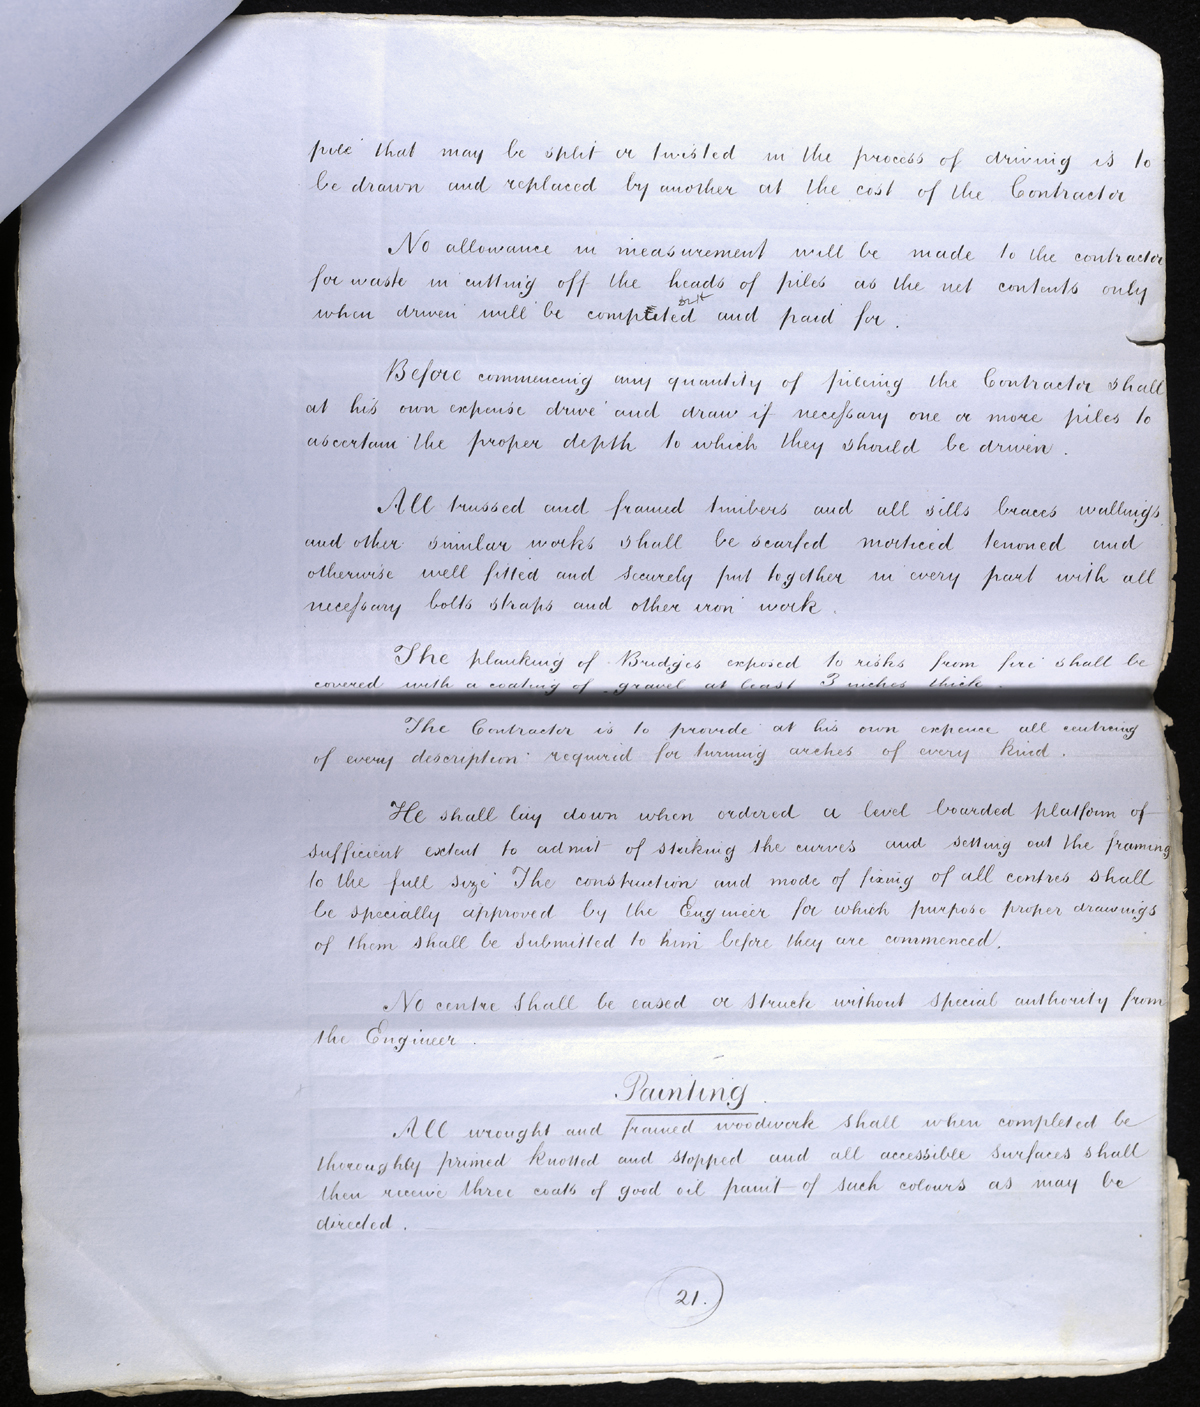 pile that may be split or twisted in the process of driving is to
be drawn and replaced by another at the cost of the Contractor
No allowance in measurement will be made to the contractor
for waste in cutting off the heads of piles as the net contents only
when driven will be computed and paid for.
Before commencing any quantity of pileing the Contractor shall
at his own expense drive and draw if necessary one or more piles to
ascertain the proper depth to which they should be driven.
All trussed and framed timbers and all sills braces wallings
and other similar works shall be scarfed morticed tenoned and
otherwise well fitted and securely put together in every part with all
necessary bolts straps and other iron work.
The planking of Bridges exposed to risks from fire shall be
covered with a coating of gravel at least 3 inches thick.
The Contractor is to provide at his own expence all centreing
of every description required for turning arches of every kind.
He shall lay down when ordered a level boarded platform of
sufficient extent to admit of striking the curves and setting out the framing
to the full size The construction and mode of fixing of all centres shall
be specially approved by the Engineer for which purpose proper drawings
of them shall be submitted to him before they are commenced.
No centre shall be eased or struck without special authority from
the Engineer.
Painting.
All wrought and framed woodwork shall when completed be
thoroughly primed knotted and stopped and all accessible surfaces shall
then receive three coats of good oil paint of such colours as may be
directed.
21.